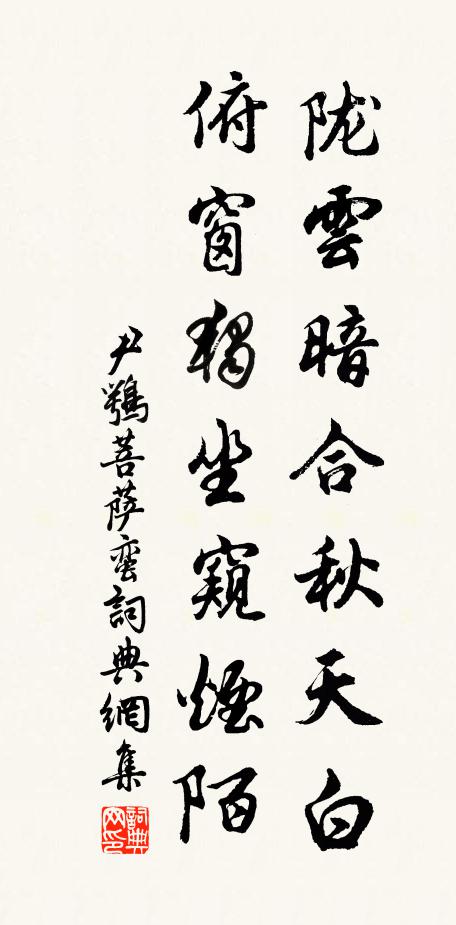 陇雲暗合秋天白
俯窗獨坐窺煙陌
尹鶚菩萨蛮詞典網集
詞典网印